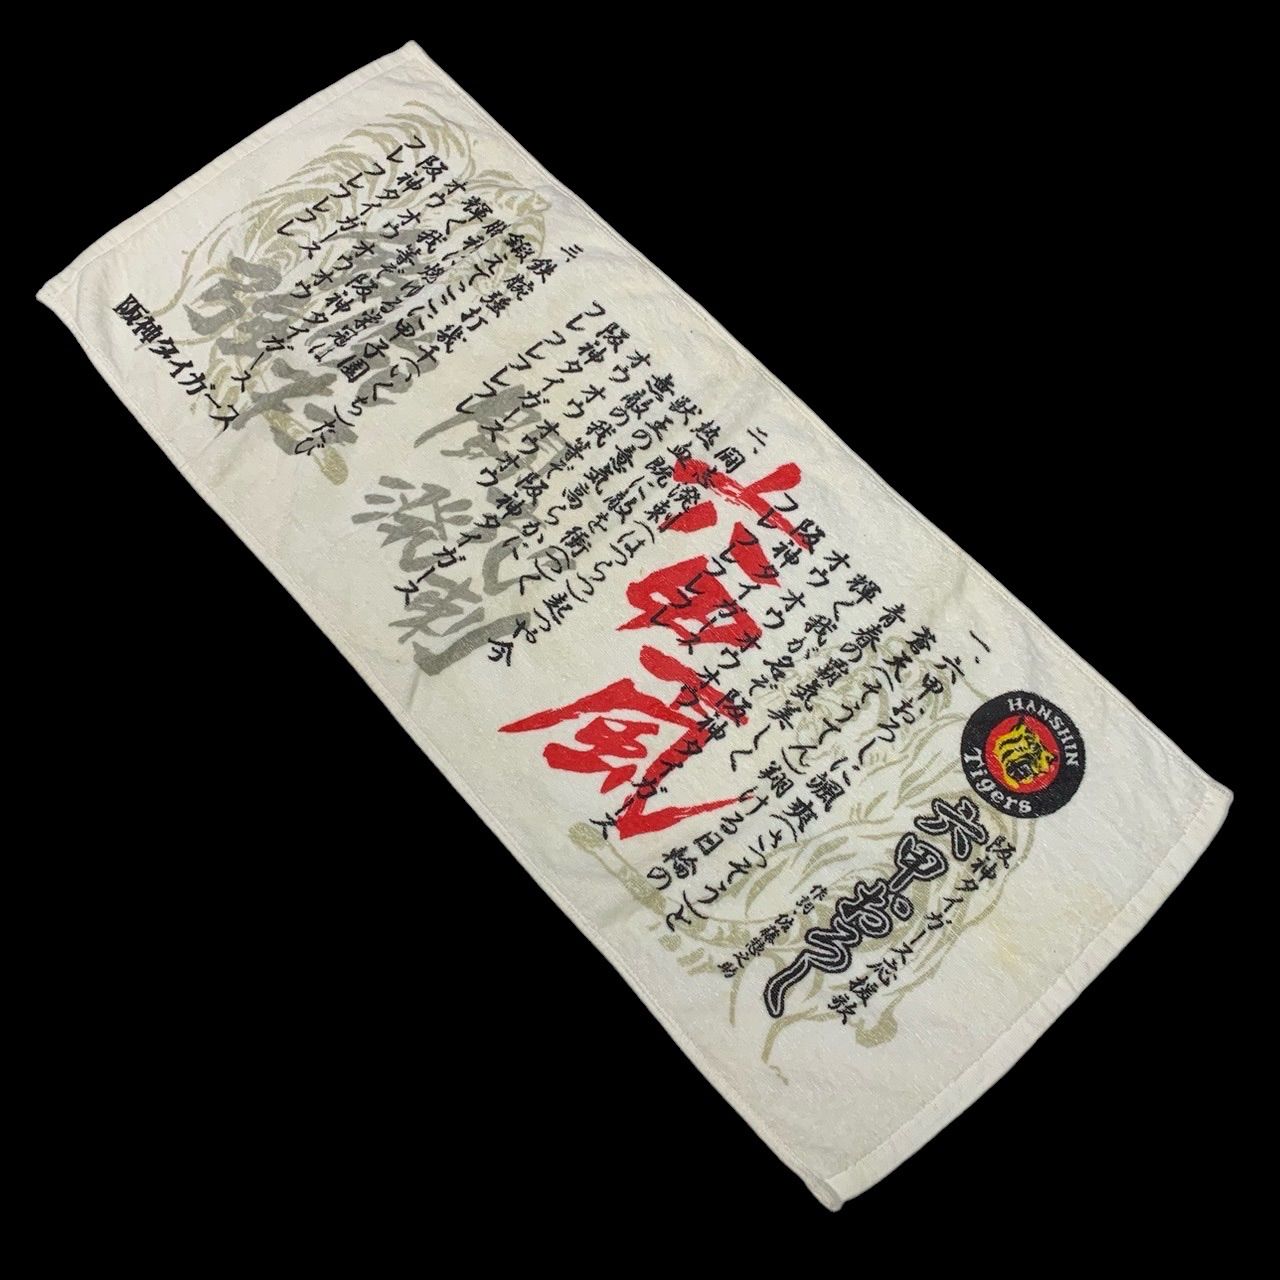 HANSHIN
Tigers
阪神タイガース応援歌
六甲おろし
作詞/佐藤惣之助
一、
六甲おろしに颯爽(さっそう)と
蒼天(そうてん)翔ける日輪の
青春の覇気美しく
輝く我が名ぞ阪神タイガース
オウオウ オウオウ
阪神タイガース
フレフレフレフレ
六甲颪
二、
闘志溌剌(はつらつ)起つや今
熱血既に敵を衝(つ)く
獣王の意気高らかに
無敵の我等ぞ阪神タイガース
オウオウ オウオウ
阪神タイガース
フレフレフレフレ
闘志
溌剌
三、
鉄腕強打幾千(いくち)たび
鍛えてここに甲子園
勝利に燃ゆる栄冠は
輝く我等ぞ阪神タイガース
オウオウ オウオウ
阪神タイガース
フレフレフレフレ
鉄腕
強打
阪神タイガース